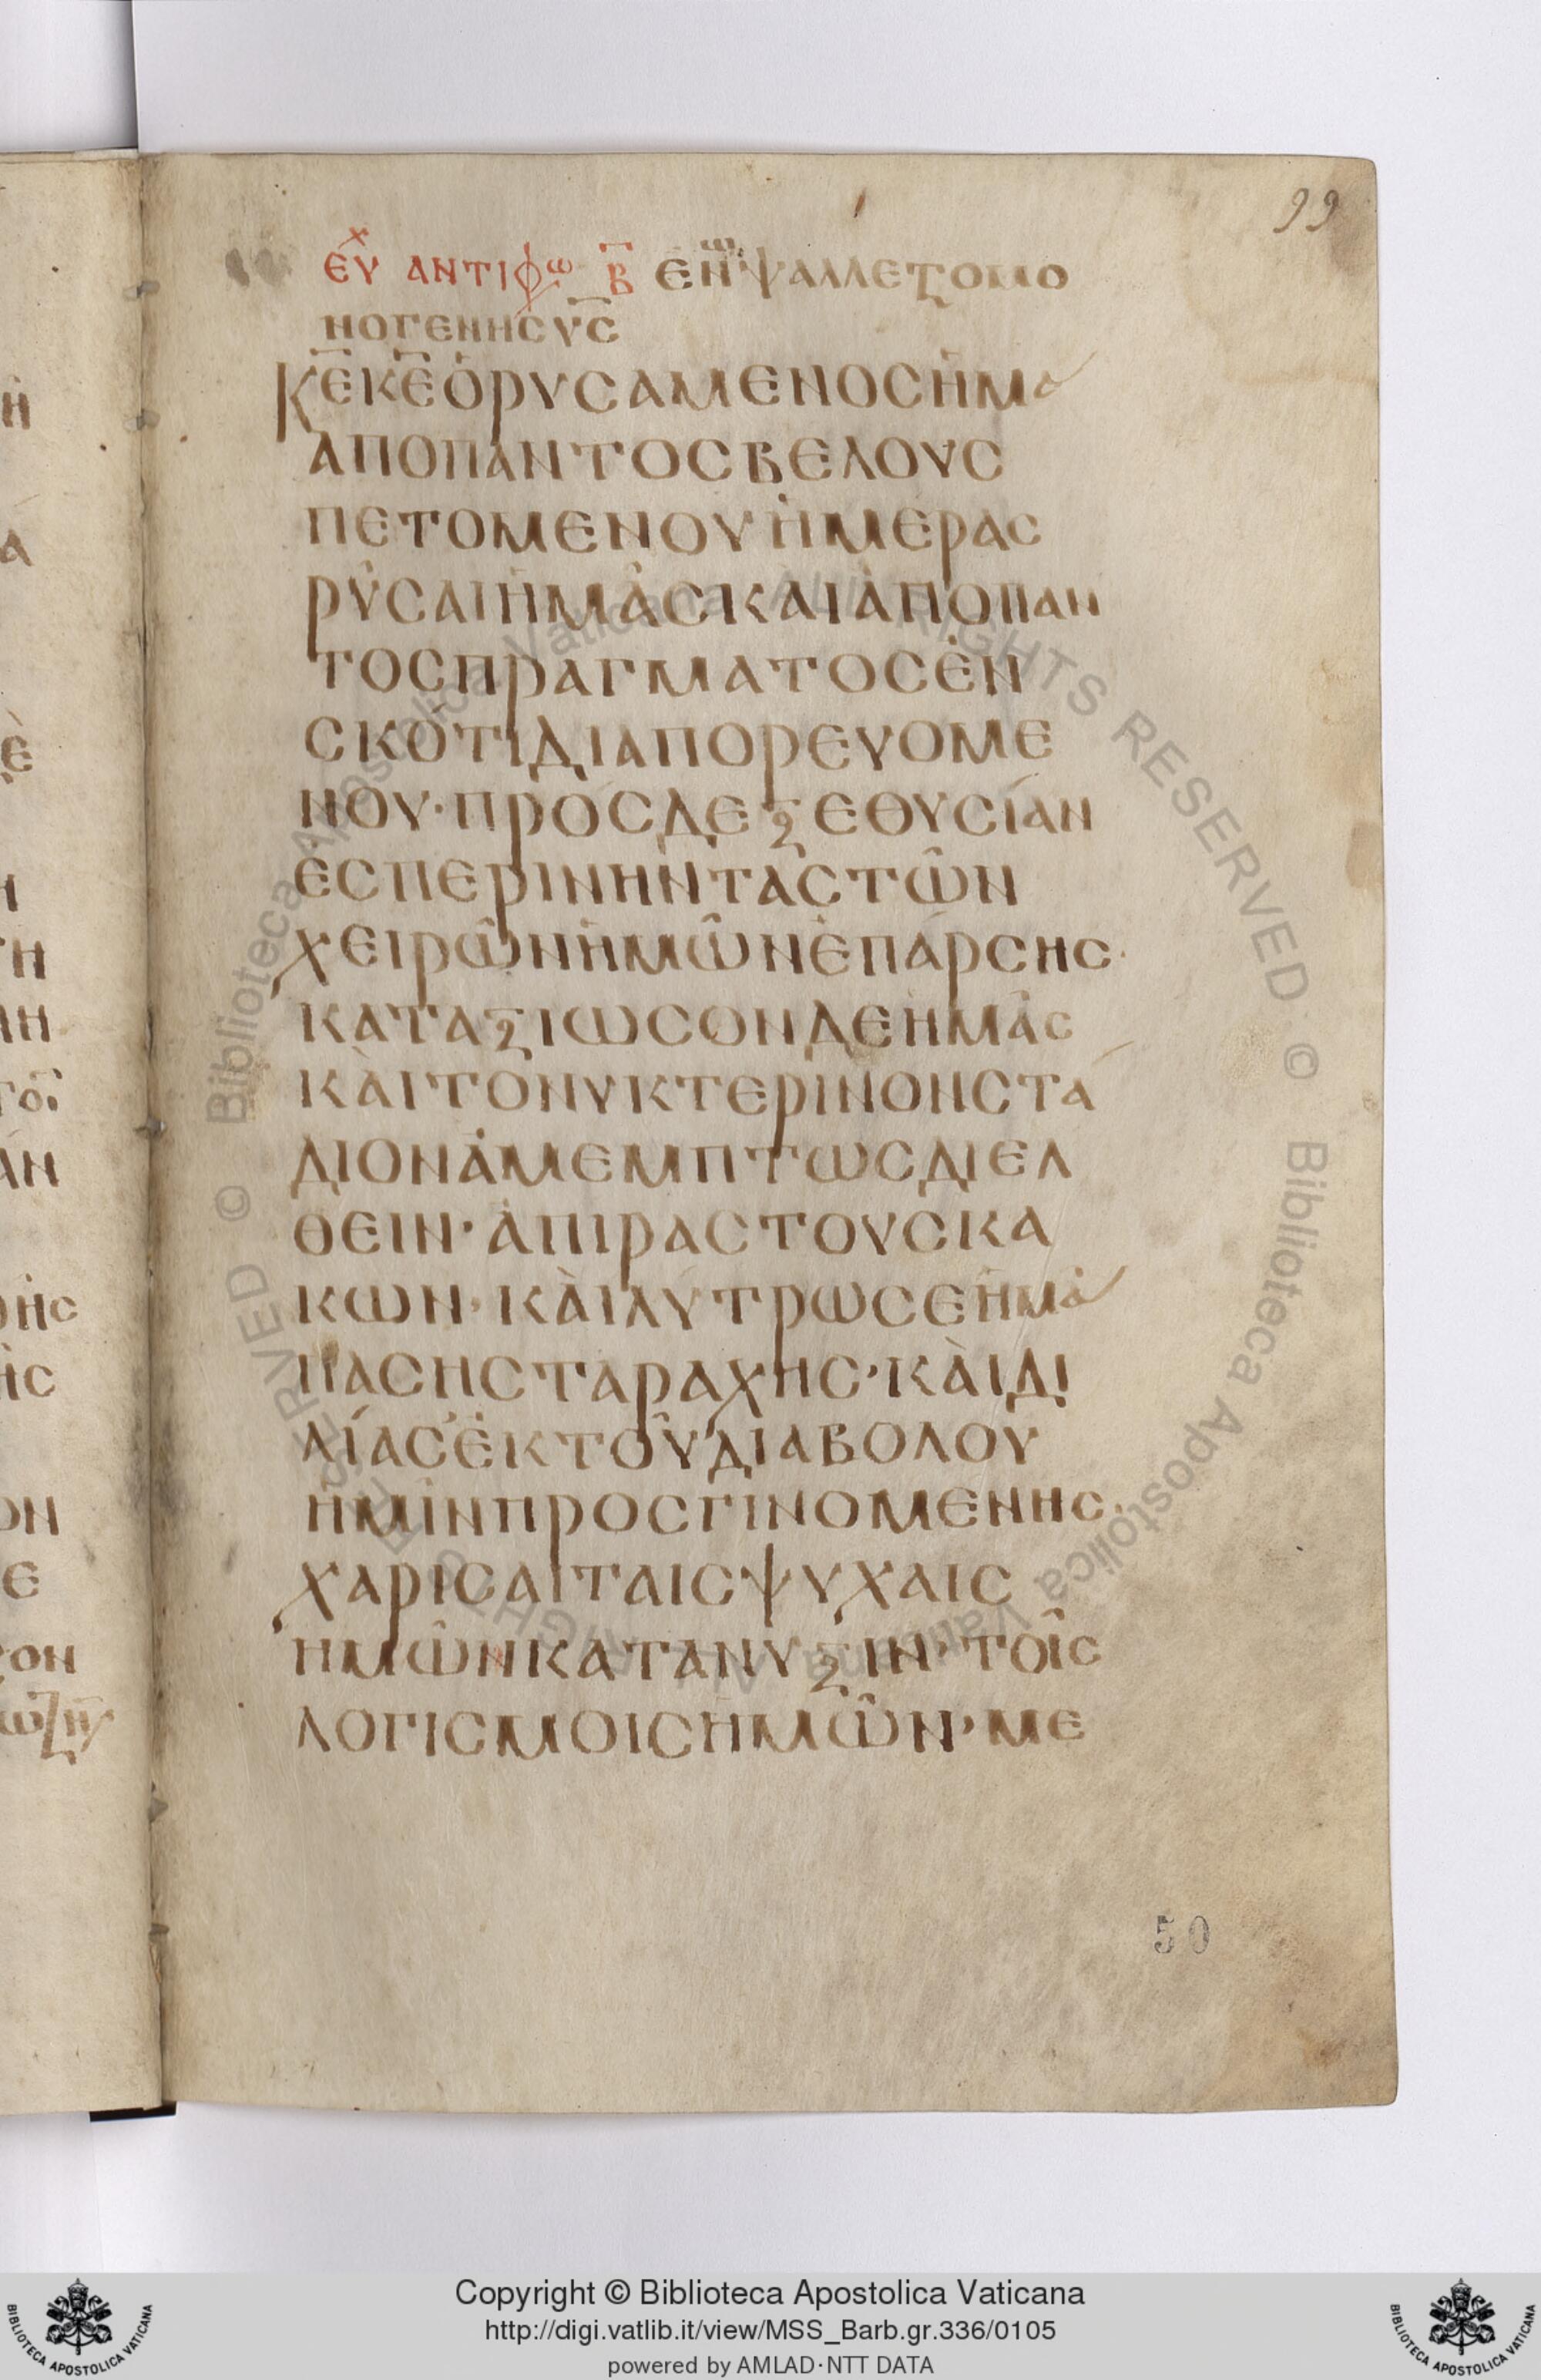 99
ΕΥΧ ΑΝΤΙΦω Β ΕΝ Ψ ΨΑΛΛΕΤ ΟΜΟ
ΝΟΓΕΝΗΣ ΥΣ
ΚΕΚΕΟΡΥCΑΜΕΝΟCΗΜΑ
ΑΠΟΠΑΝΤΟCΒΕΛΟΥC
ΠΕΤΟΜΕΝΟΥΗΜΕΡΑC
ΡΥCΑΙΗΜΑCΚΑΙΑΠΟΠΑΝ
ΤΟCΠΡΑΓΜΑΤΟCΕΝ
CΚΟΤΙΔΙΑΠΟΡΕΥΟΜΕ
ΝΟΥ·ΠΡΟCΔΕΞΕΘΥCΙΑΝ
ΕCΠΕΡΙΝΗΝΤΑCΤΩΝ
ΧΕΙΡΩΝΗΜΩΝΕΠΑΡCΗC·
ΚΑΤΑΞΙΩCΟΝΔΕΗΜΑC
ΚΑΙΤΟΝΥΚΤΕΡΙΝΟΝCΤΑ
ΔΙΟΝΑΜΕΜΠΤΩCΔΙΕΛ
ΘΕΙΝ·ΑΠΙΡΑCΤΟΥCΚΑ
ΚΩΝ·ΚΑΙΛΥΤΡΩCΕΗΜΑ
ΠΑCΗCΤΑΡΑΧΗC·ΚΑΙΔΙ
ΛΙΑCΕΚΤΟΥΔΙΑΒΟΛΟΥ
ΗΜΙΝΠΡΟCΓΙΝΟΜΕΝΗC·
ΧΑΡΙCΑΙΤΑΙCΨΥΧΑΙC
ΗΜΩΝΚΑΤΑΝΥΞΙΝ·ΤΟΙC
ΛΟΓΙCΜΟΙCΗΜΩΝ·ΜΕ
50
Copyright © Biblioteca Apostolica Vaticana
http://digi.vatlib.it/view/MSS_Barb.gr.336/0105
powered by AMLAD·NTT DATA
BIBLIOTECA APOSTOLICA VATICANA
BIBLIOTECA APOSTOLICA VATICANA